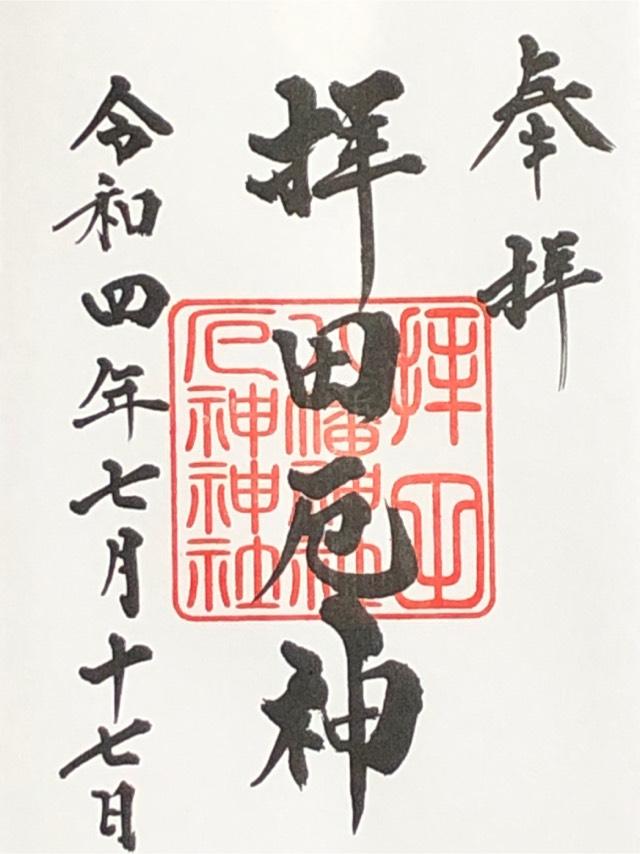 奉拝
拝田厄神
令和四年七月十七日
八幡神社
厄神神社